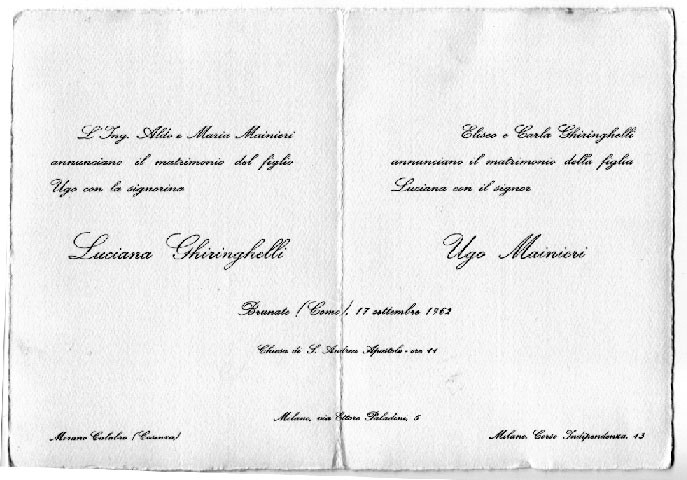 L'Ing. Aldo e Maria Mainieri
annunciano il matrimonio del figlio
Ugo con la signorina
Luciana Ghiringhelli
Eliseo e Carla Ghiringhelli
annunciano il matrimonio della figlia
Luciana con il signor
Ugo Mainieri
Brunate (Como), 17 settembre 1962
Chiesa di S. Andrea Apostolo - ore 11
Milano, via Ettore Paladini, 5
Morano Calabro (Cosenza)
Milano, Corso Indipendenza, 13